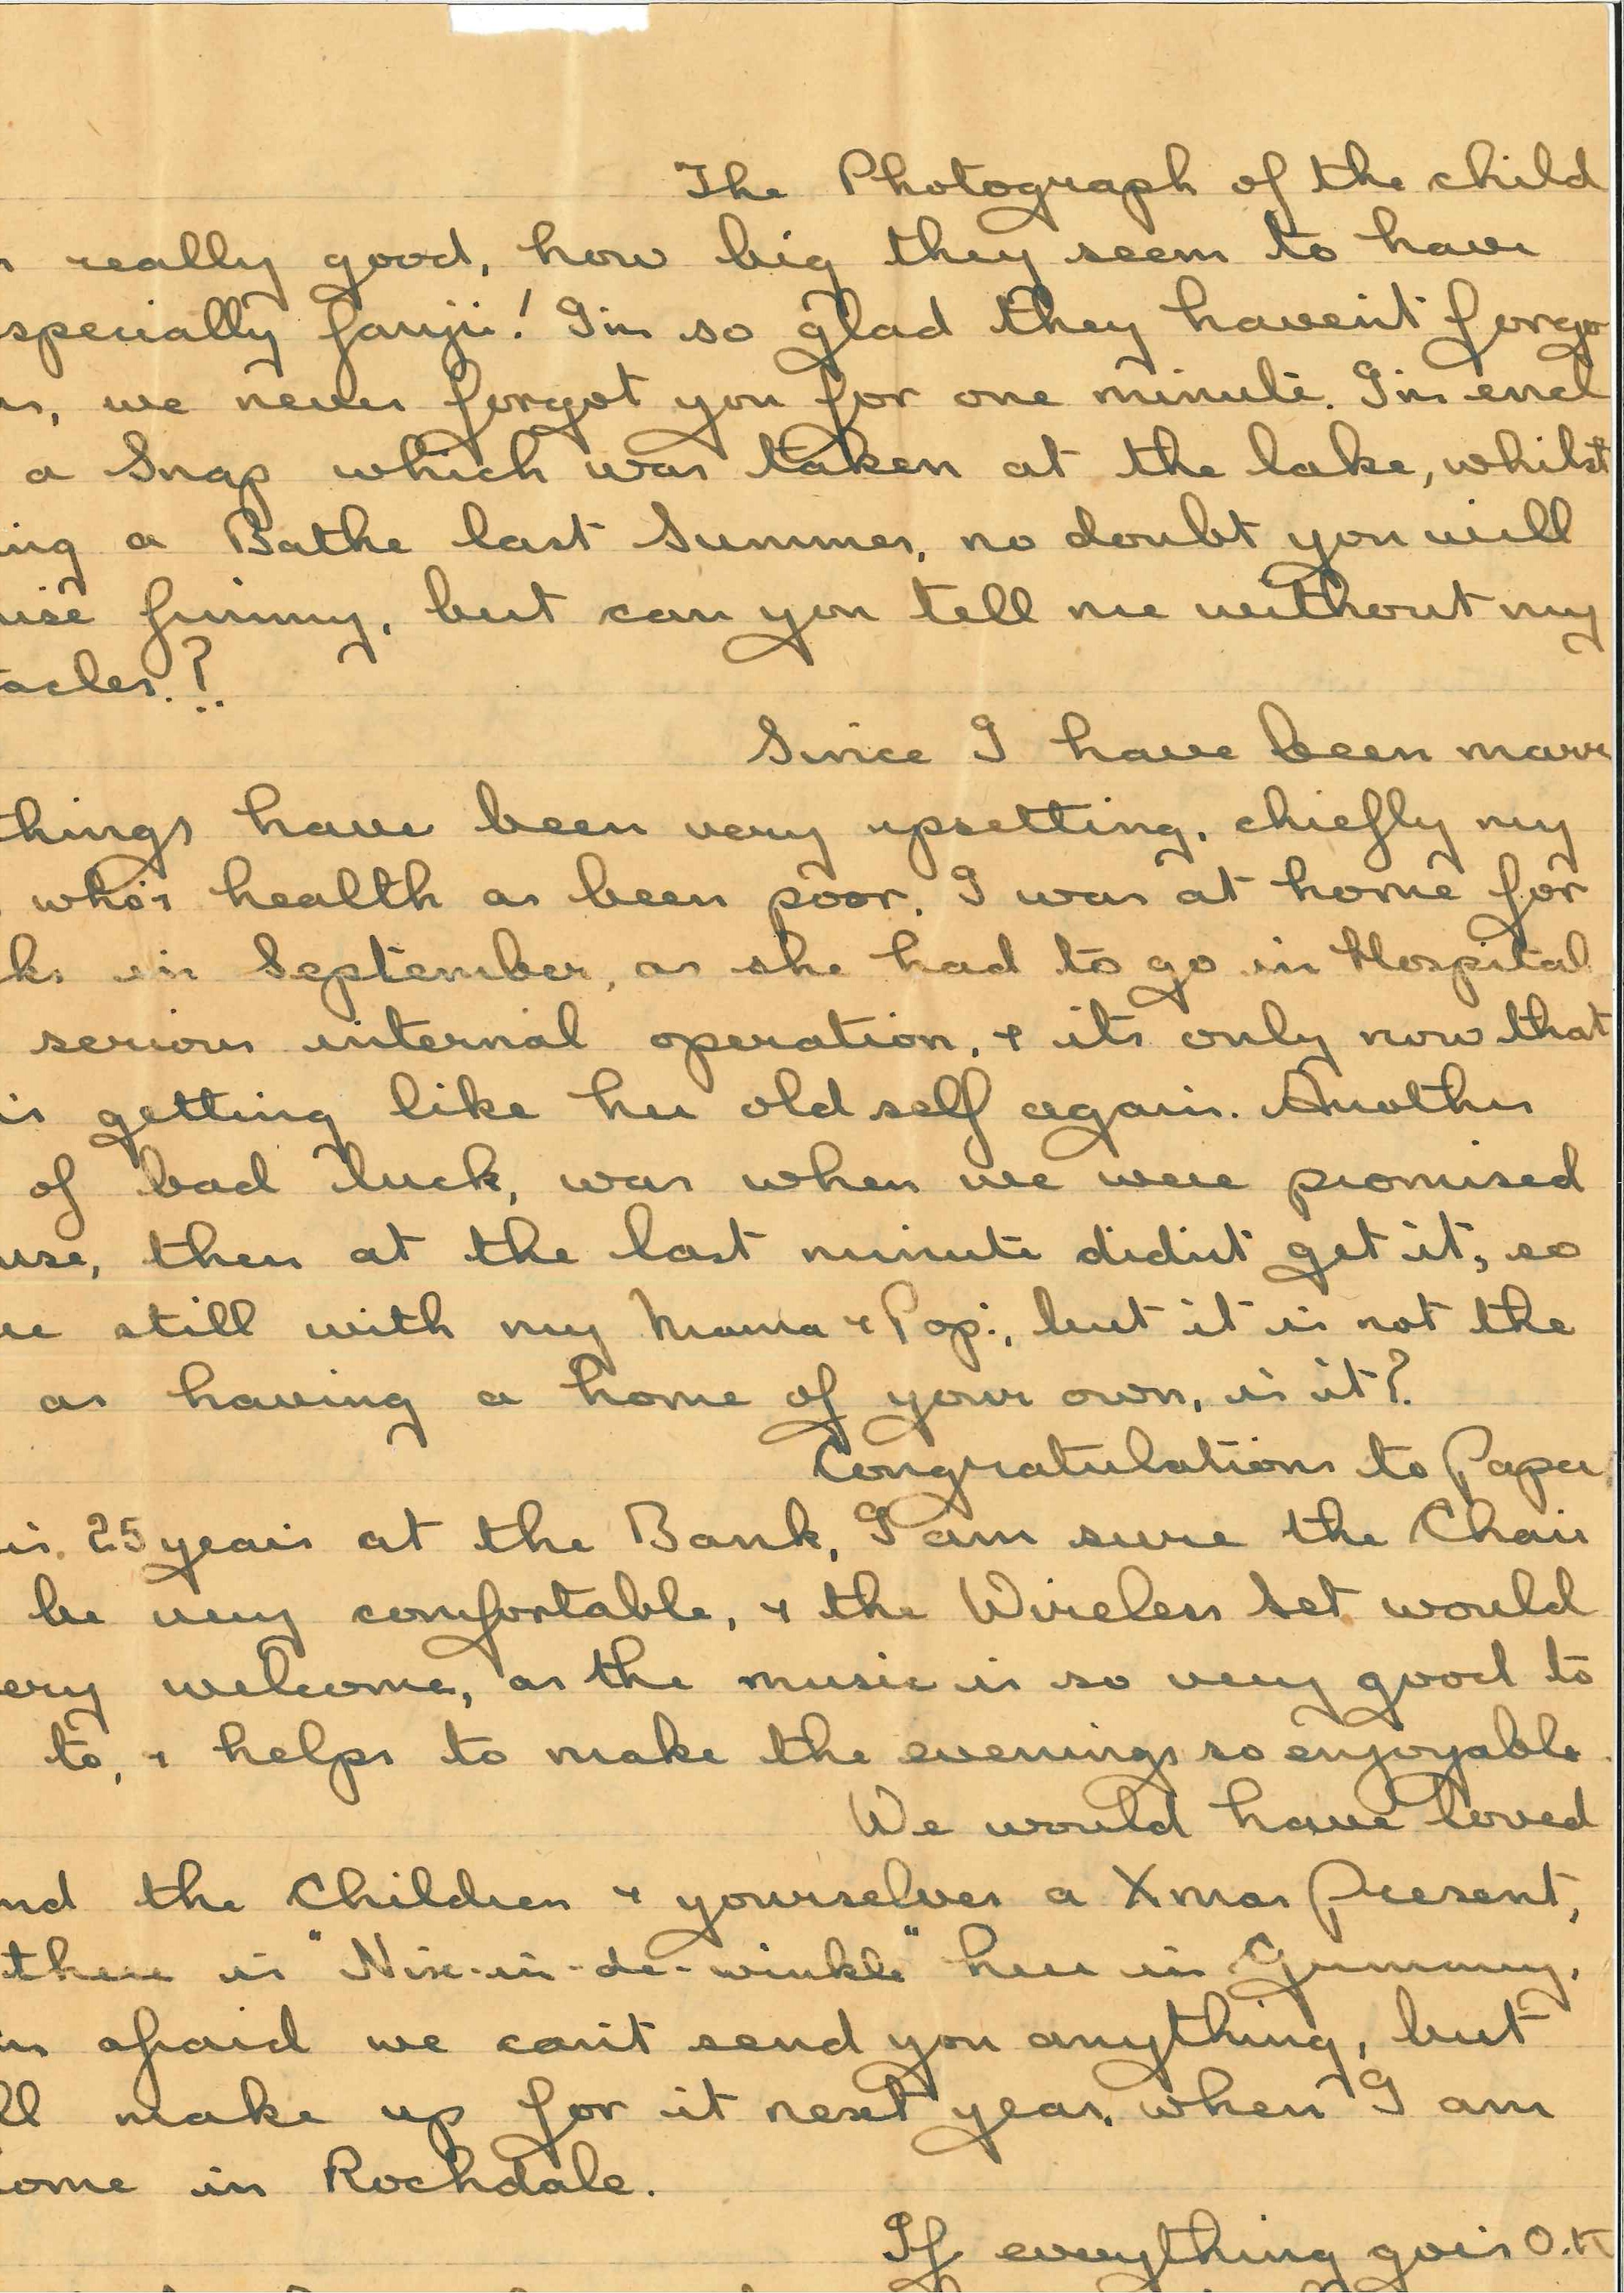 The Photograph of the child
really good, how big they seem to have
specially Janjii! I'm so glad they haven't forgo
us, we never forgot you for one minute. I'm encl
a Snap which was taken at the lake, whilst
ing a Bathe last Summer, no doubt you will
ise Jimmy, but can you tell me without my
acles.?
Since I have been marr
things have been very upsetting, chiefly my
who's health as been poor. I was at home for
ks in September, as she had to go in Hospital
serious internal operation, & its only now that
is getting like her old self again. Another
of bad luck, was when we were promised
use, then at the last minute didn't get it, so
re still with my Mama & Pop:, but it is not the
as having a home of your own, is it?
Congratulations to Papa,
is 25 years at the Bank, I am sure the Chair
be very comfortable, & the Wireless Set would
ery welcome, as the music is so very good to
to, & helps to make the evenings so enjoyable.
We would have loved
nd the Children & yourselves a Xmas Present,
there is "Nix-in-de-winkle" here in Germany,
m afraid we can't send you anything, but
ll make up for it next year, when I am
ome in Rochdale.
If everything goes O.K